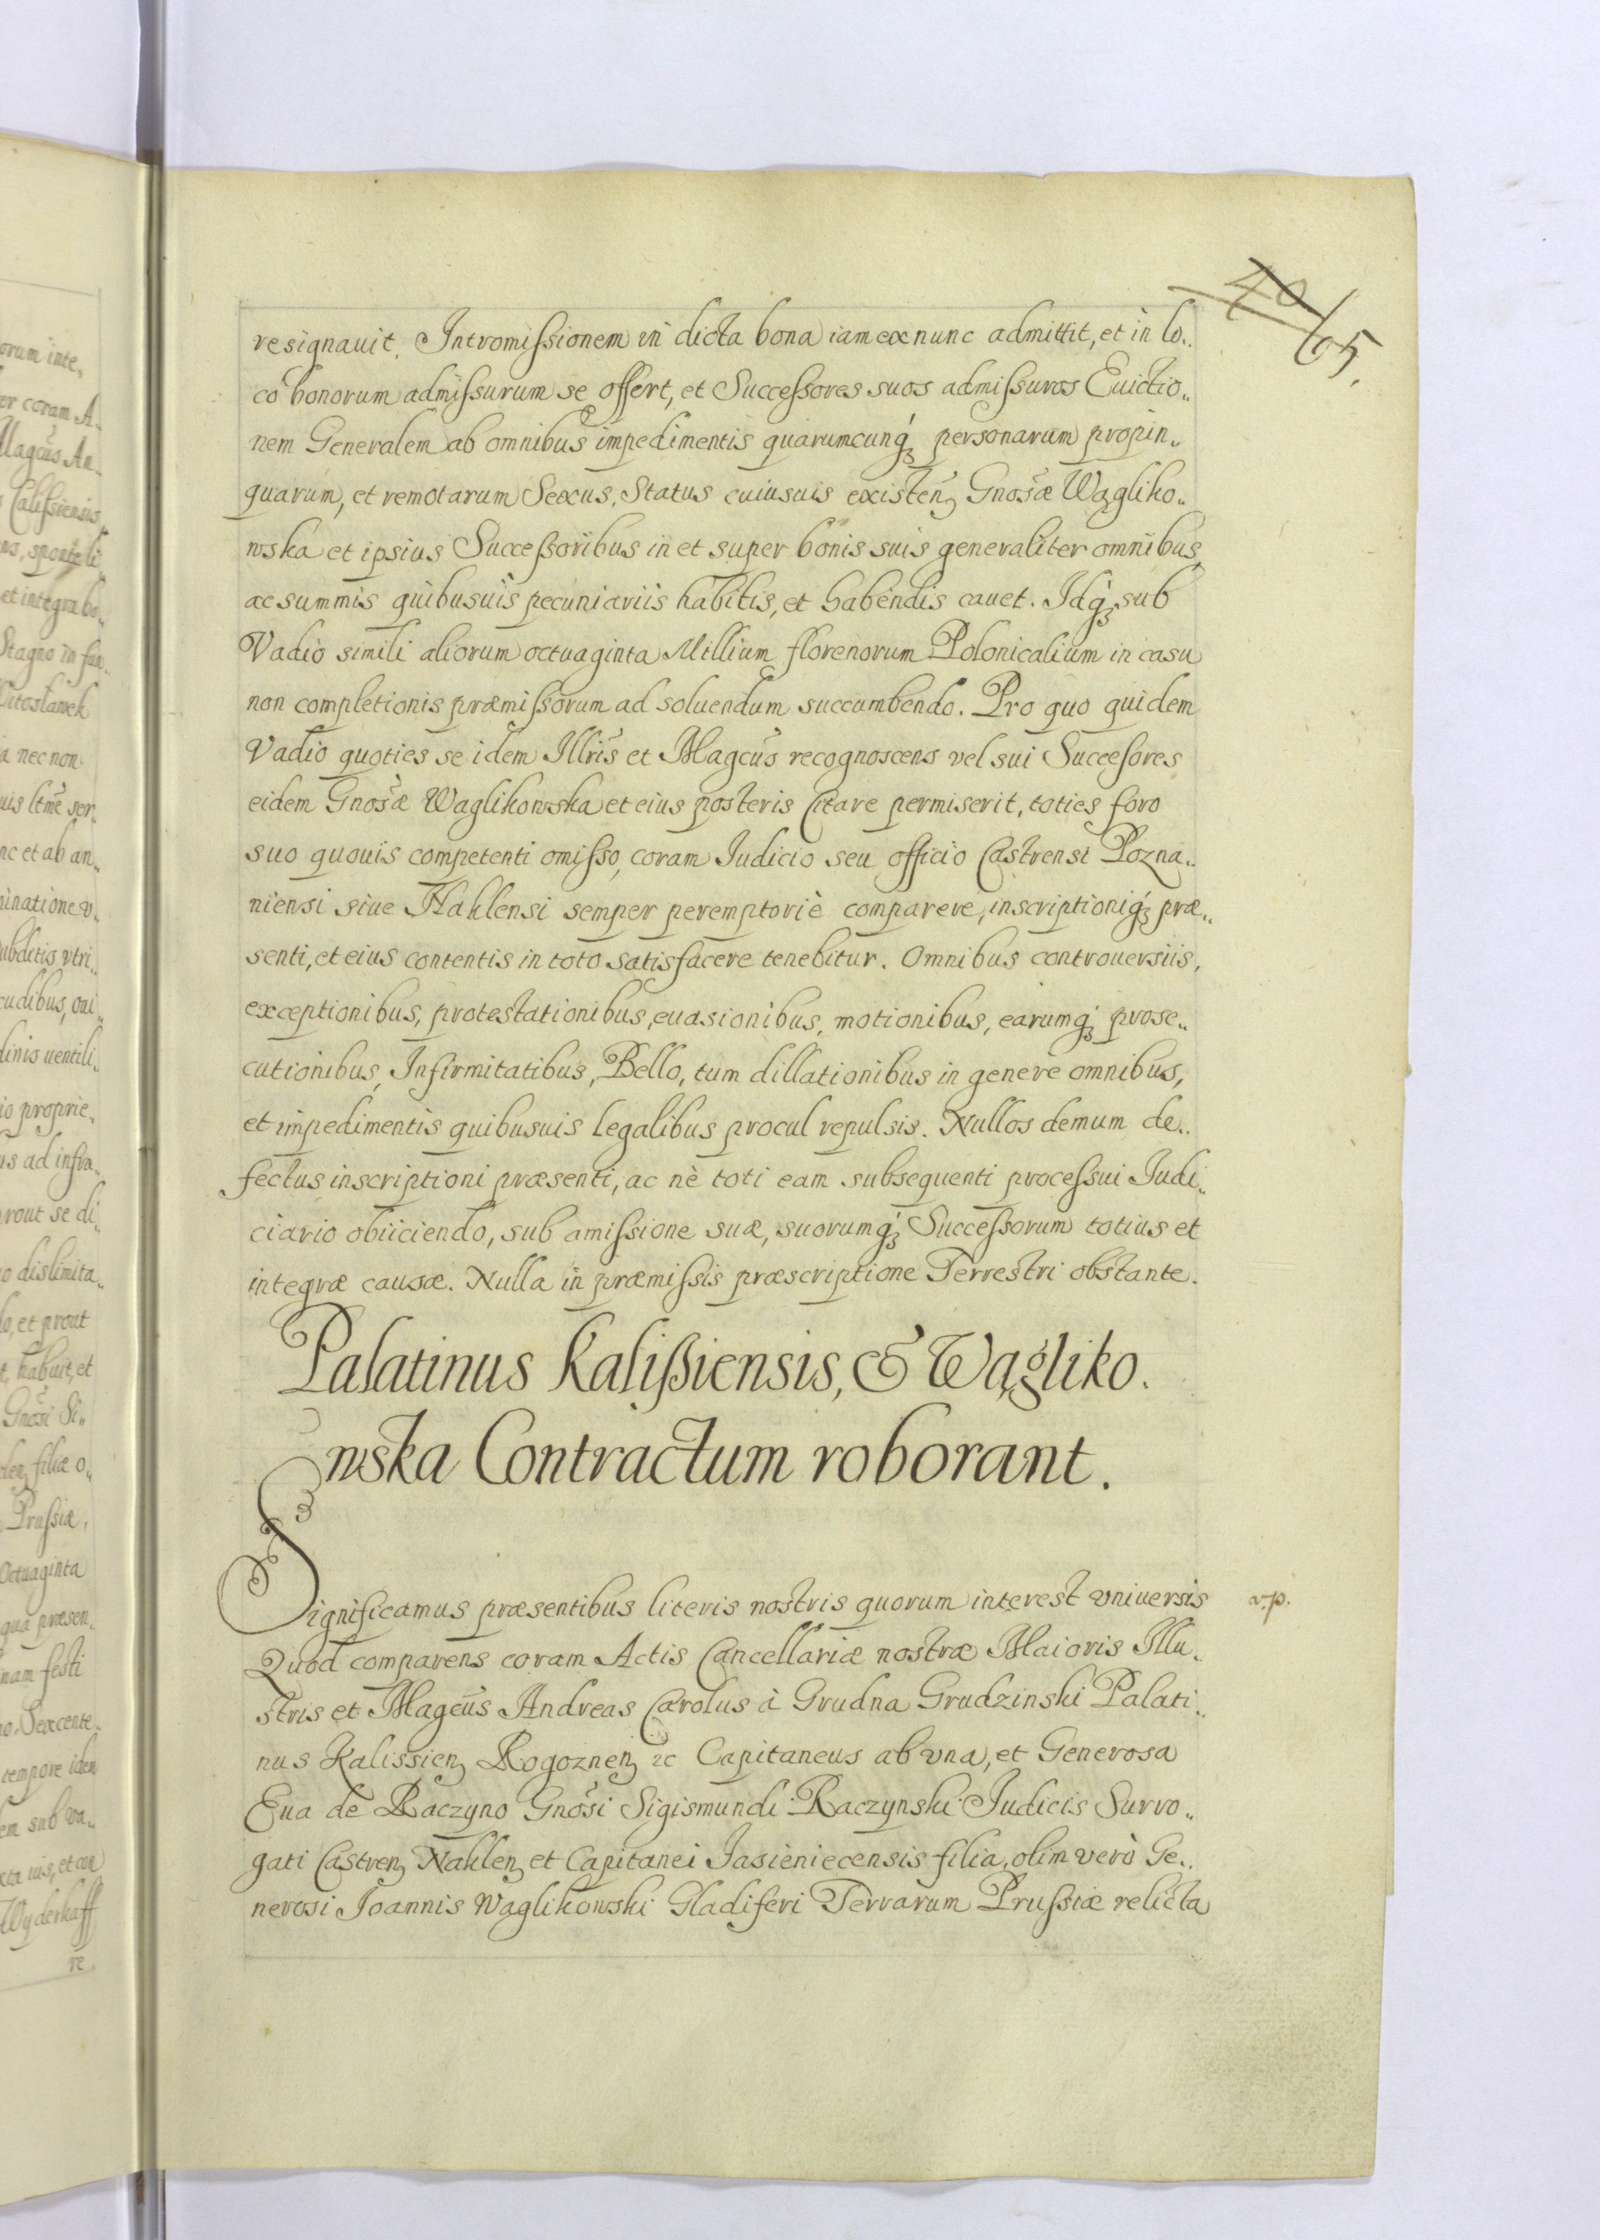 40
65.
resignauit. Intromissionem in dicta bona iam ex nunc admittit, et in lo..
co bonorum admissurum se offert, et Successores suos admissuros Euictio..
nem Generalem ab omnibus impedimentis quarumcunq́ꝫ personarum propin..
quarum, et remotarum Sexus, Status cuiusuis existenꝫ Gnosæ Wągliko..
wska et ipsius Successoribus in et super bonis suis generaliter omnibus,
ac summis quibusuis pecuniariis habitis, et habendis cauet. Idq́ꝫ sub
Vadio simili aliorum octuaginta Millium florenorum Polonicalium in casu
non completionis præmissorum ad soluendum succumbendo. Pro quo quidem
Vadio quoties se idem Illris et Magcus recognoscens vel sui Succesores
eidem Gnosæ Waglikowska et eius posteris Citare permiserit, toties foro
suo quouis competenti omisso, coram Iudicio seu officio Castrensi Pozna..
niensi siue Naklensi semper peremptoriè comparere, inscriptioniq́ꝫ præ..
senti, et eius contentis in toto satisfacere tenebitur. Omnibus controuersiis,
exceptionibus, protestationibus, euasionibus, motionibus, earumq́ꝫ prose..
cutionibus, Infirmitatibus, Bello, tum dillationibus in genere omnibus,
et impedimentis quibusuis legalibus procul repulsis. Nullos demum de..
fectus inscriptioni præsenti, ac nè toti eam subsequenti processui Iudi..
ciario obiiciendo, sub amissione suæ, suorumq́ꝫ Successorum totius et
integræ causæ. Nulla in præmissis præscriptione Terrestri obstante.
Palatinus Kalißiensis, & Wągliko.
wska Contractum roborant.
Significamus præsentibus literis nostris quorum interest vniuersis
v.p.
Quod comparens coram Actis Cancellariæ nostræ Maioris Illu..
stris et Magcus Andreas Carolus à Grudna Grudzinski Palati..
nus Kalissienꝫ Rogoznenꝫ &c Capitaneus ab vna, et Generosa
Eua de Raczyno Gnosi Sigismundi Raczynski Iudicis Surro..
gati Castrenꝫ Naklenꝫ et Capitanei Jasieniecensis filia, olim verò Ge..
nerosi Joannis Waglikowski Gladiferi Terrarum Prussiæ relicta